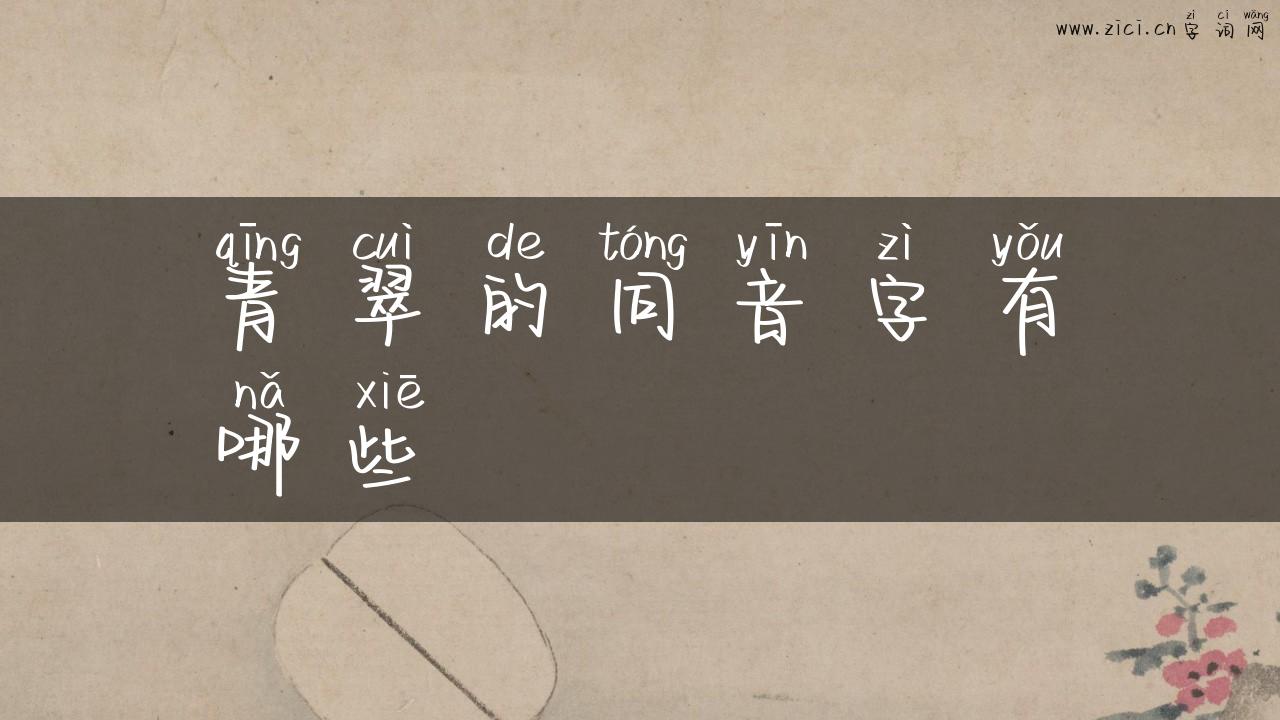 zì cí wǎng
www.zici.cn 字 词 网
qīng cuì de tóng yīn zì yǒu
青 翠 的 同 音 字 有
nǎ xiē
哪 些